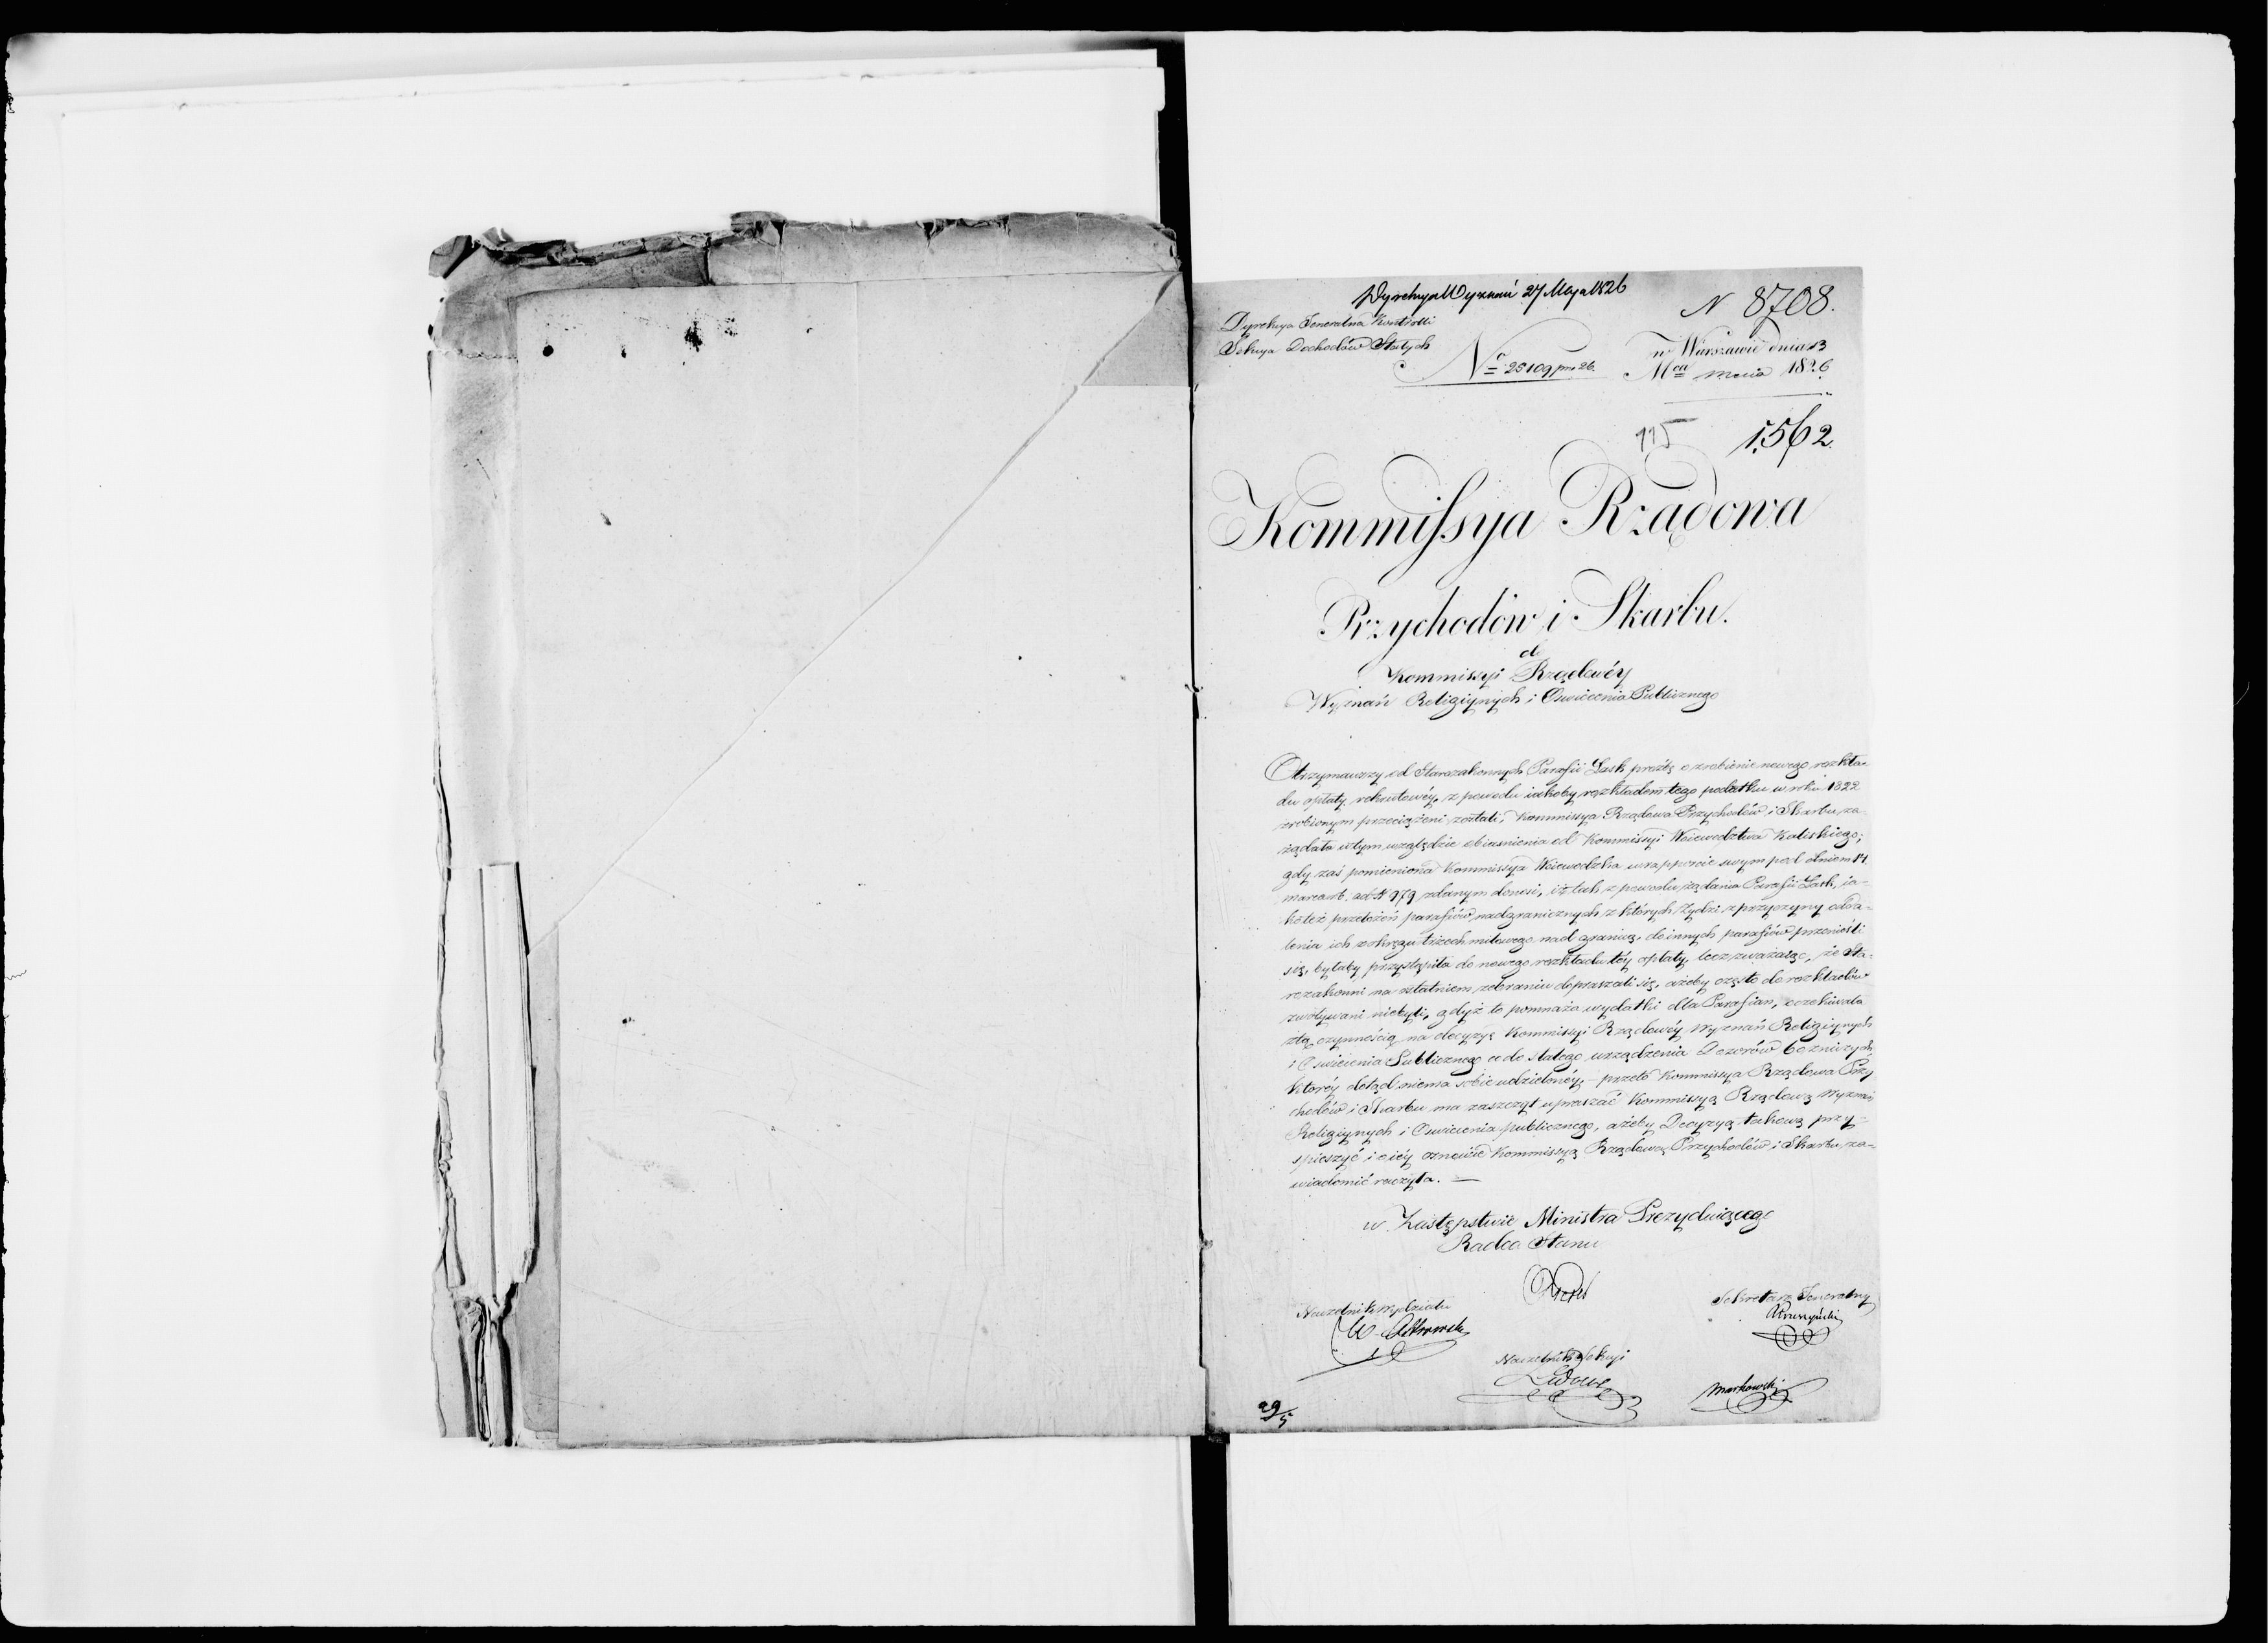 Dyrekcya Wyznań 27 Maja 1826
N 8708.
Dyrekcya Generalna Kontrolli
Sekcya Dochodów Stałych
Nº 25109 pro 26.
w Warszawie dnia 13
Mca Maia 1826
115
1,562
Kommissya Rządowa
Przychodów i Skarbu.
do
Kommissyi Rządowéy
Wyznań Religiynych i Oswiecenia Publicznego
Otrzymawszy od Starozakonnych Parafii Łask prożbę o zrobienie nowego rozkła-
du opłaty rekrutowéy, z powodu iakoby rozkładem tego podatku w roku 1822
zrobionym przeciążeni zostali, Kommissya Rządowa Przychodów i Skarbu, za-
żądała w tym względzie obiasnienia od Kommissyi Woiewództwa Kaliskiego;
gdy zaś pomieniona Kommissya Woiewódzka w rapporcie swym pod dniem 14
marca r.b. ad N 979 zdanym donosi, iż lub z powodu żądania Parafii Łask, ia-
koteż przełożeń parafiów nadgranicznych z których Żydzi z przyczyny odda-
lenia ich z okręgu trzech milowego nad granicą, do innych parafiów przenieśli
się, byłaby przystąpiła do nowego rozkładu téy opłaty, lecz zważaiąc, że Sta-
rozakonni na ostatniem zebraniu dopraszali się, ażeby często do rozkładów
zwoływani niebyli, gdyż to pomnaża wydatki dla Parafian, oczekiwała
z tą czynnością na decyzyę Kommissyi Rządowéy Wyznań Religiynych
i Oswiecenia Publicznego co do stałego urządzenia Dozorów bożniczych,
któréy dotąd niema sobie udzielonéy, – przeto Kommissya Rządowa Przy
chodów i Skarbu ma zaszczyt upraszać Kommissyą Rządową Wyznań
Religiynych i Oswiecenia publicznego, ażeby Decyzyą takową przy-
spieszyć i o iéy osnowie Kommissyą Rządową Przychodów i Skarbu, za-
wiadomić raczyła. —
w Zastępstwie Ministra Prezyduiącego
Radca Stanu
Naczelnik Wydziału
Sekretarz Generalny
Naczelnik Sekcyi
Markowski
29/5